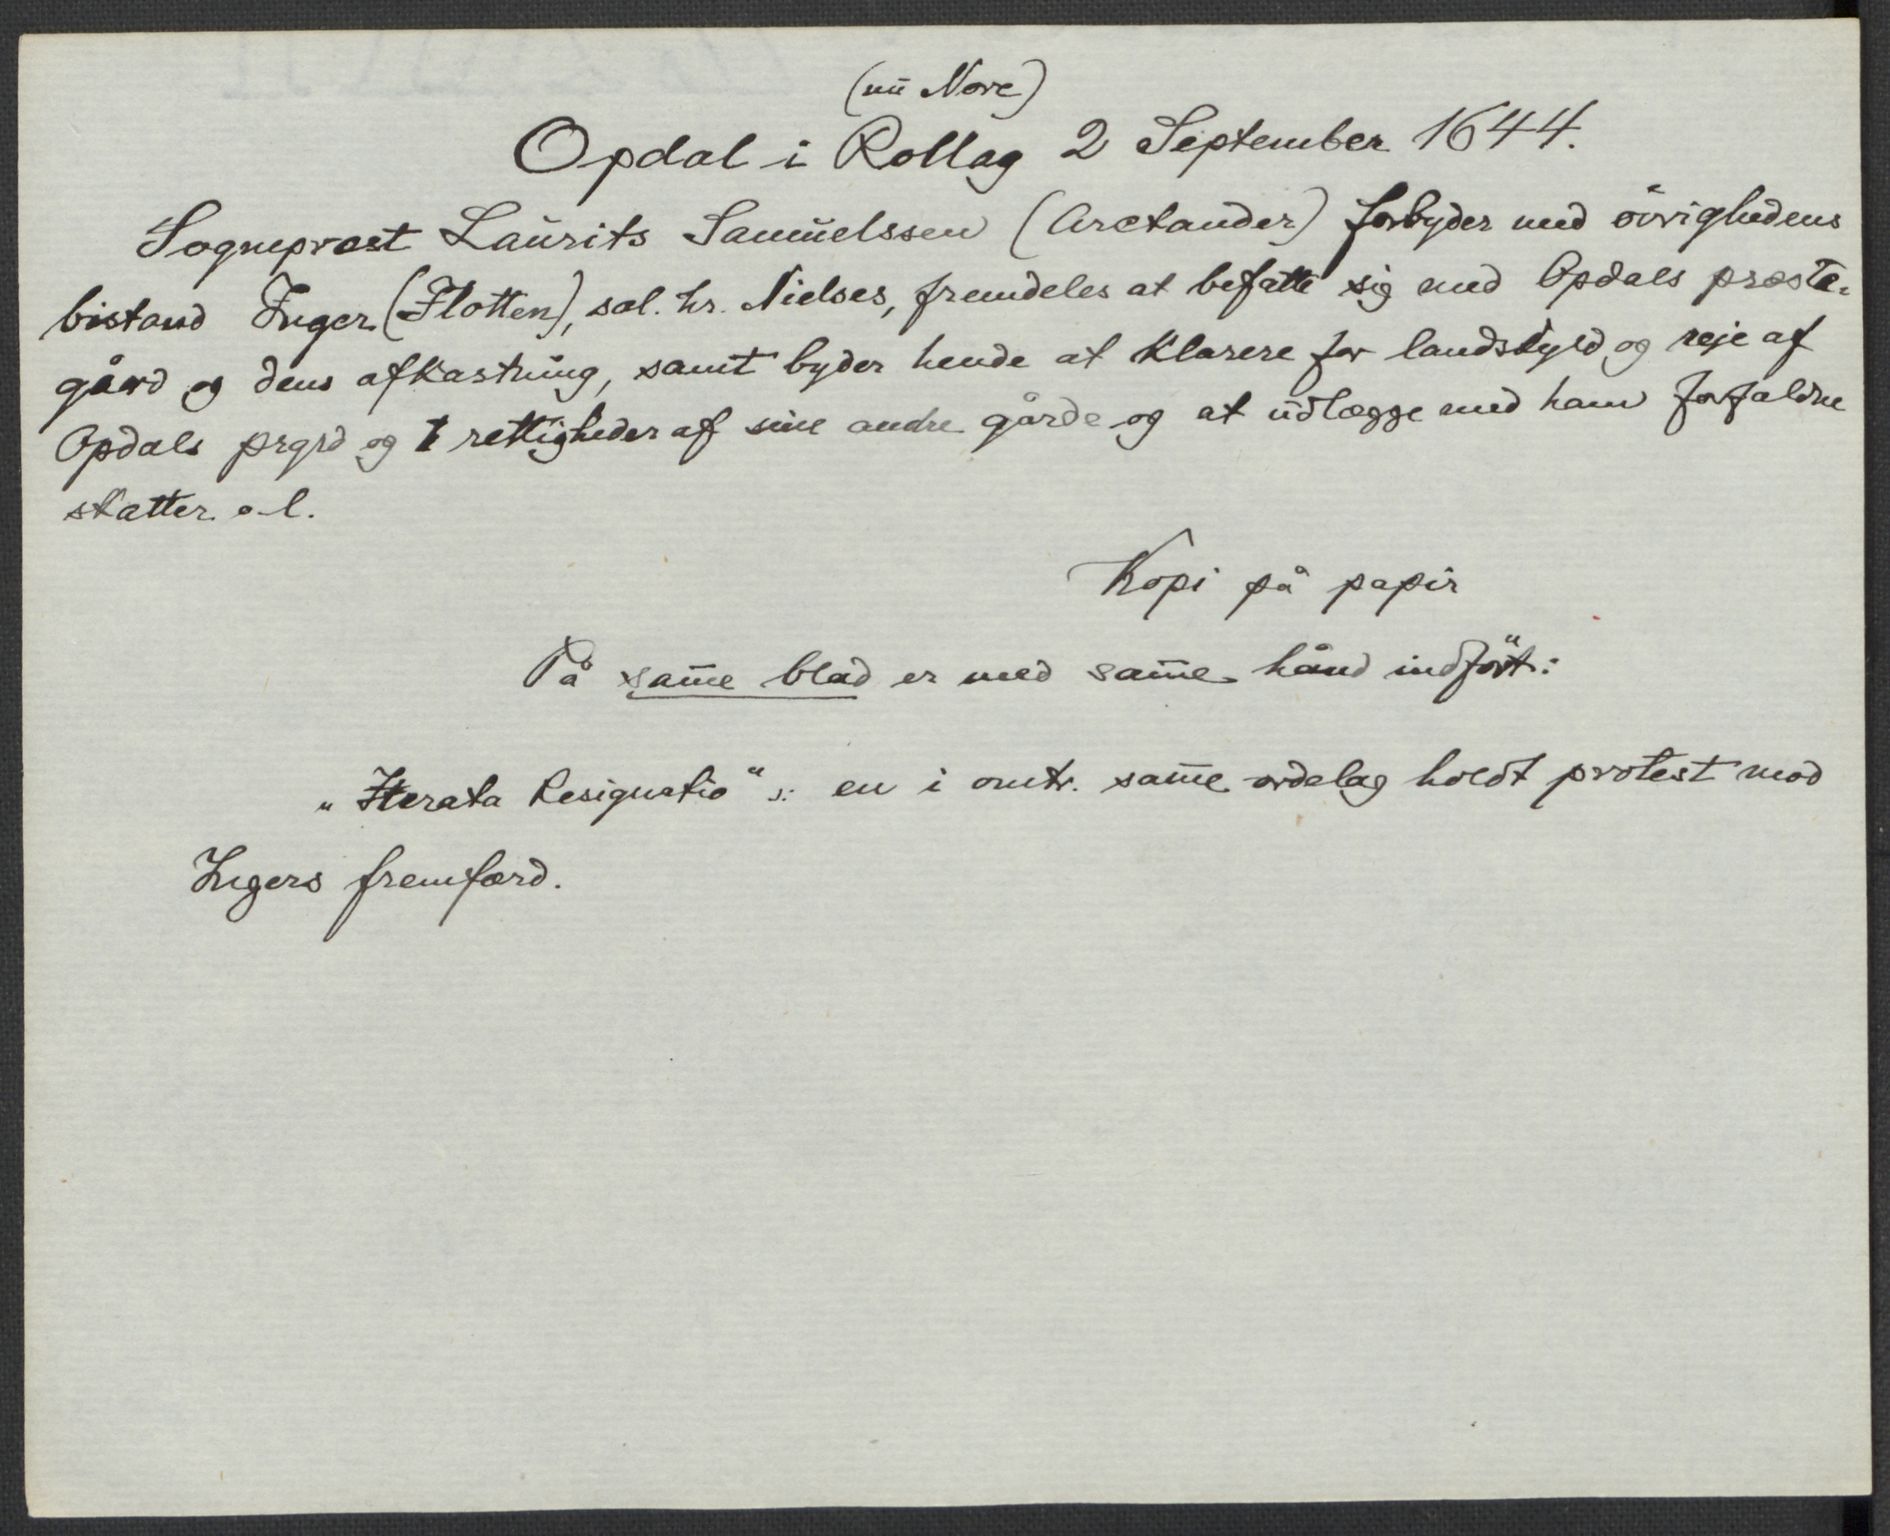 (nu Nore)
Opdal i Rollag 2 September 1644.
Sognepræst Laurits Samuelssen (Arctander) forbyder med øvrighedens
bistand Inger (Flotten), sal. hr. Nielses, fremdeles at befatte sig med Opdals præste-
gård og dens afkastning, samt byder hende at klarere for landskyld og leje af
Opdals prgrd og rettigheder af sine andre gårde og at udlægge med ham forfaldne
skatter o-l.
Kopi på papir
På sam̄e blad er med sam̄e hånd indført:
„Iterata Resignatio“ ɔ: en i omtr. sam̄e ordelag holdt protest mod
Ingers fremfærd.